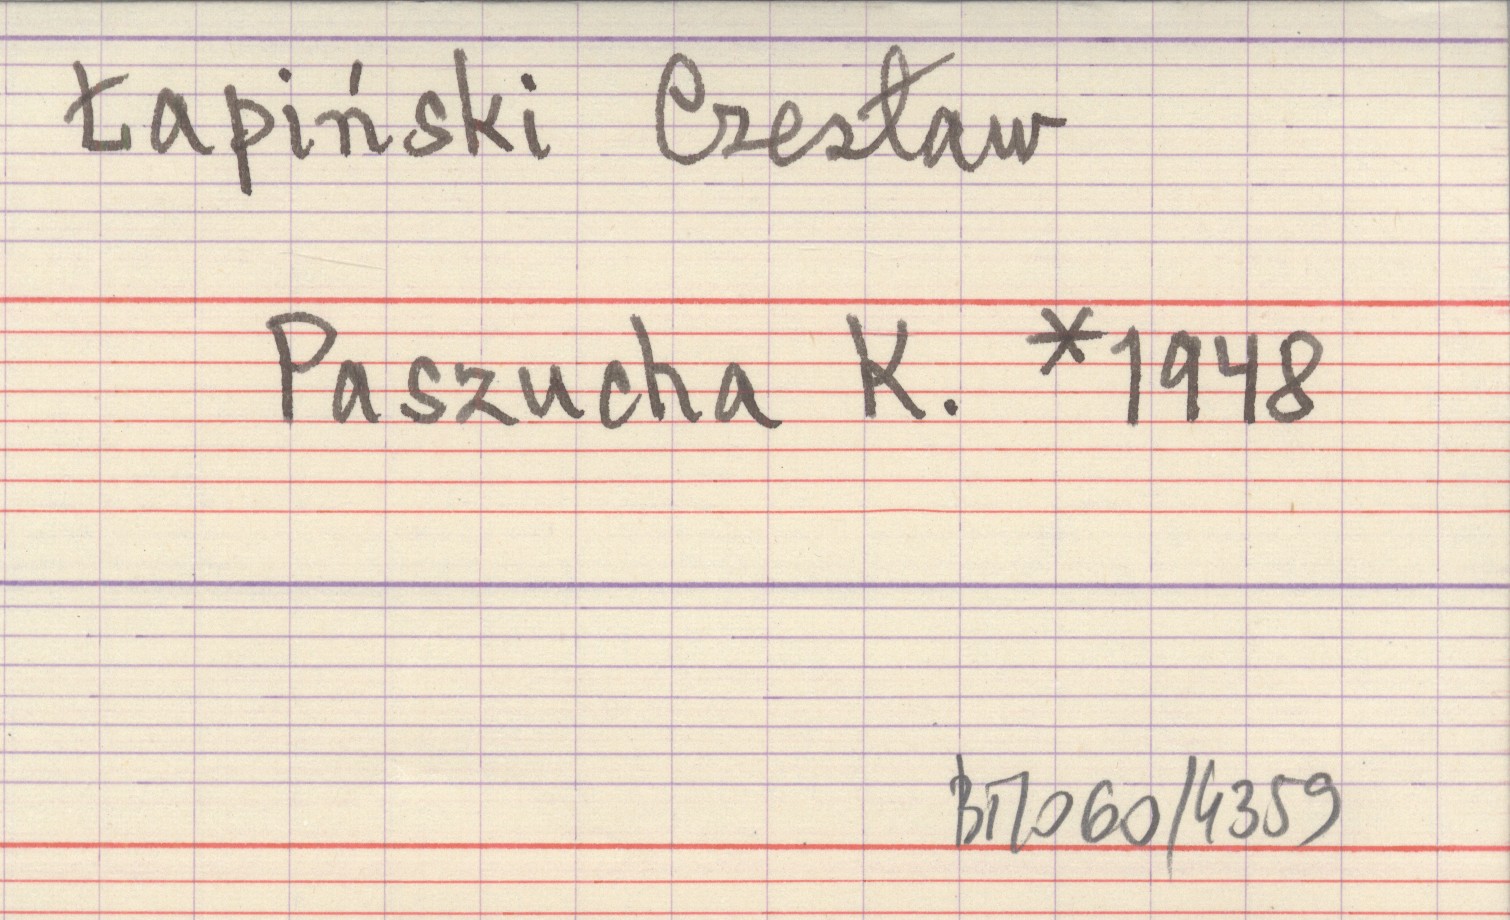 Łapiński Czesław
Paszucha K. *1948
/4359